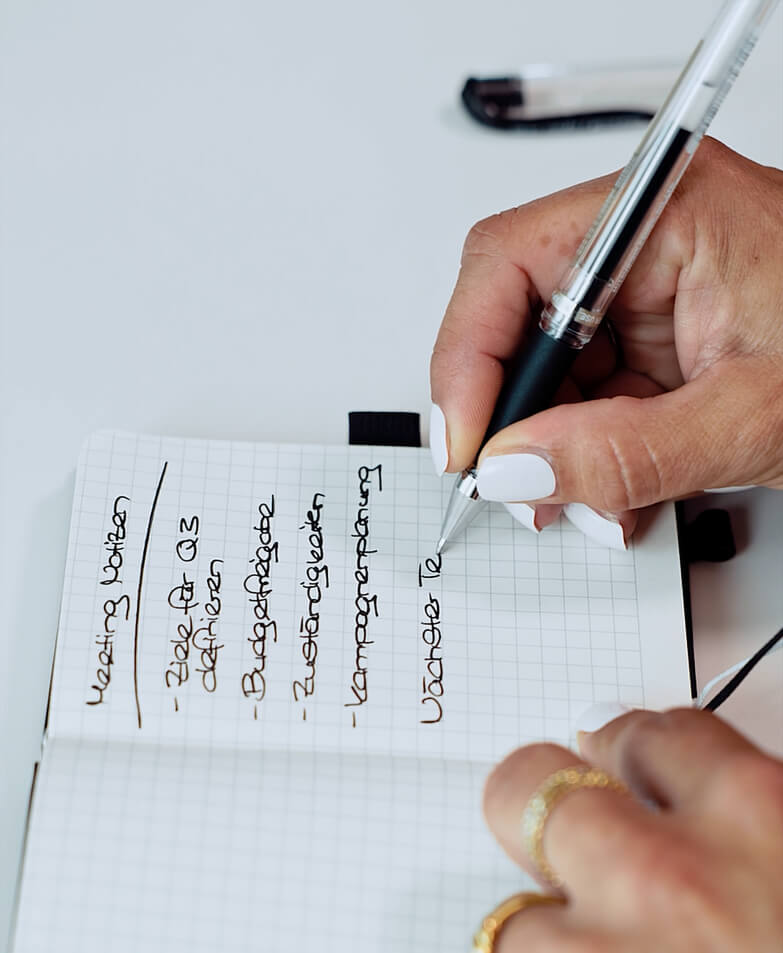 Meeting Notizen
- Ziele für Q3
definieren
- Budgetfreigabe
- Zuständigkeiten
- Kampagnenplanung
Nächster Te